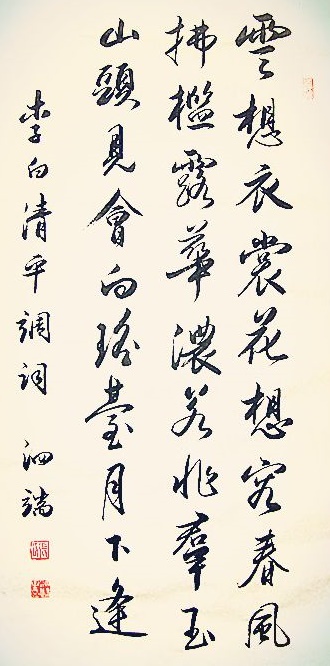 雲想衣裳花想容春風
拂檻露華濃若非群玉
山頭見會向瑤臺月下逢
李白清平調詞 泗端